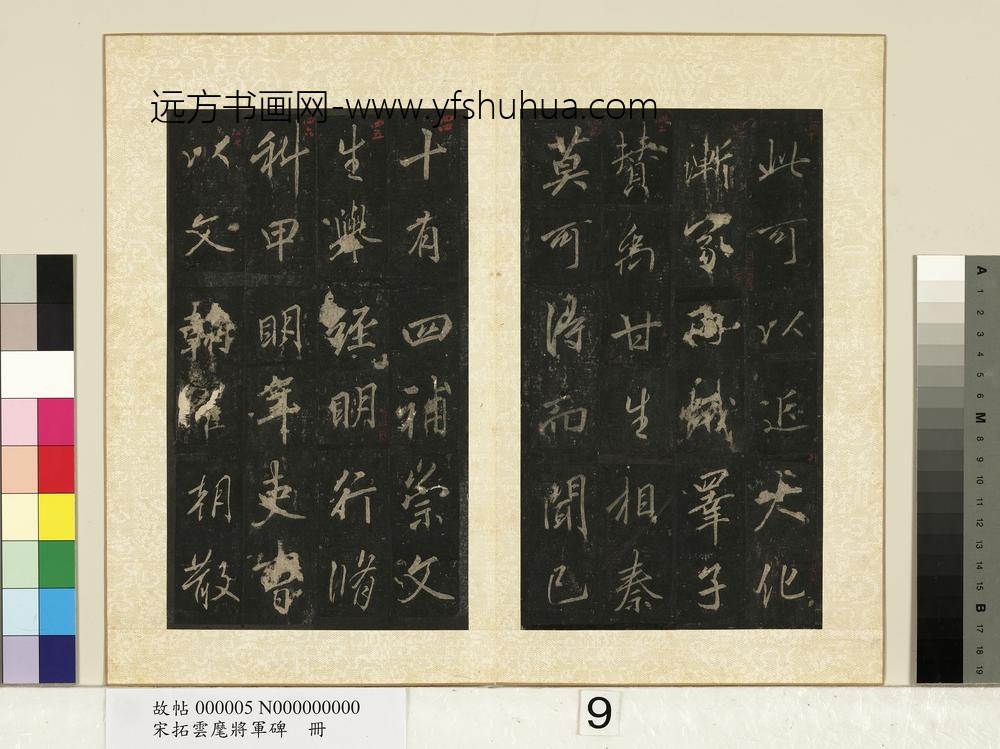 远方书画网-www.yfshuhua.com
此可以近天化
漸家
罩子
賛禹甘生相秦
莫可得而聞已
十有四補崇文
生舉經明行脩
科甲明年吏曹
以文翰
相敬
故帖 000005 N000000000
宋拓雲麾將軍碑 冊
9
A 1 2 3 4 5 6 M 8 9 10 11 12 13 14 15 B 17 18 19